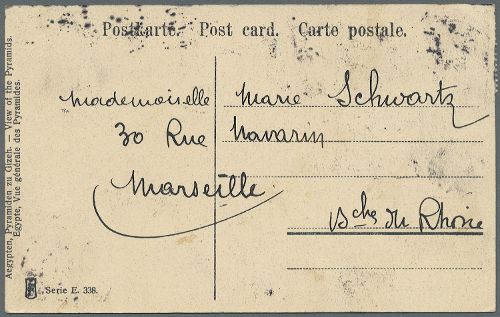 Postkarte. Post card. Carte postale.
Mademoiselle Marie Schwartz
30 Rue Navarin
Marseille
Bches du Rhône
Aegypten, Pyramiden zu Gizeh. — View of the Pyramids.
Egypte, Vue générale des Pyramides.
Serie E. 338.